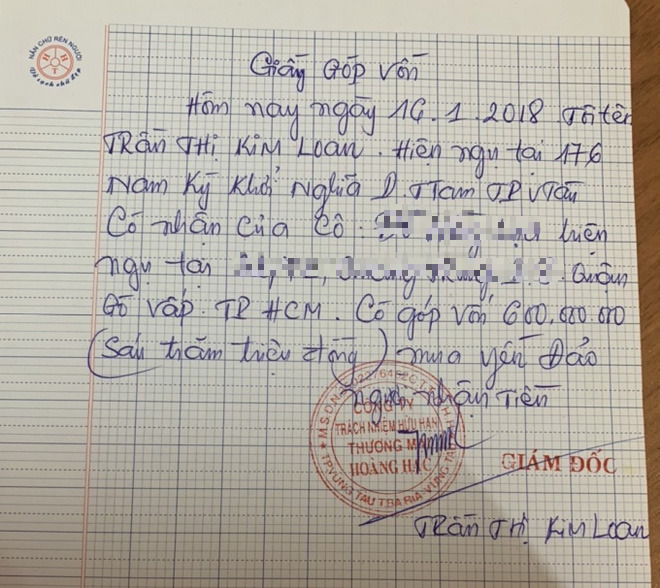 NẮN CHỮ RÈN NGƯỜI
Giấy Góp Vốn
Hôm nay ngày 14.1.2018 Tôi tên
TRẦN THỊ KIM LOAN. Hiện ngụ tại 176
Nam Kỳ Khởi Nghĩa P. TTam TP VTàu
Có nhận của Cô. hiện
ngụ tại Quận
Gò Vấp. TP HCM. Có góp vốn 600.000.000
(Sáu trăm triệu đồng) mua yến Đảo
người nhận Tiền
CÔNG TY
TRÁCH NHIỆM HỮU HẠN
THƯƠNG MẠI
HOÀNG HẠC
TP.VŨNG TÀU T.BÀ RỊA-VŨNG TÀU
GIÁM ĐỐC
TRẦN THỊ KIM LOAN